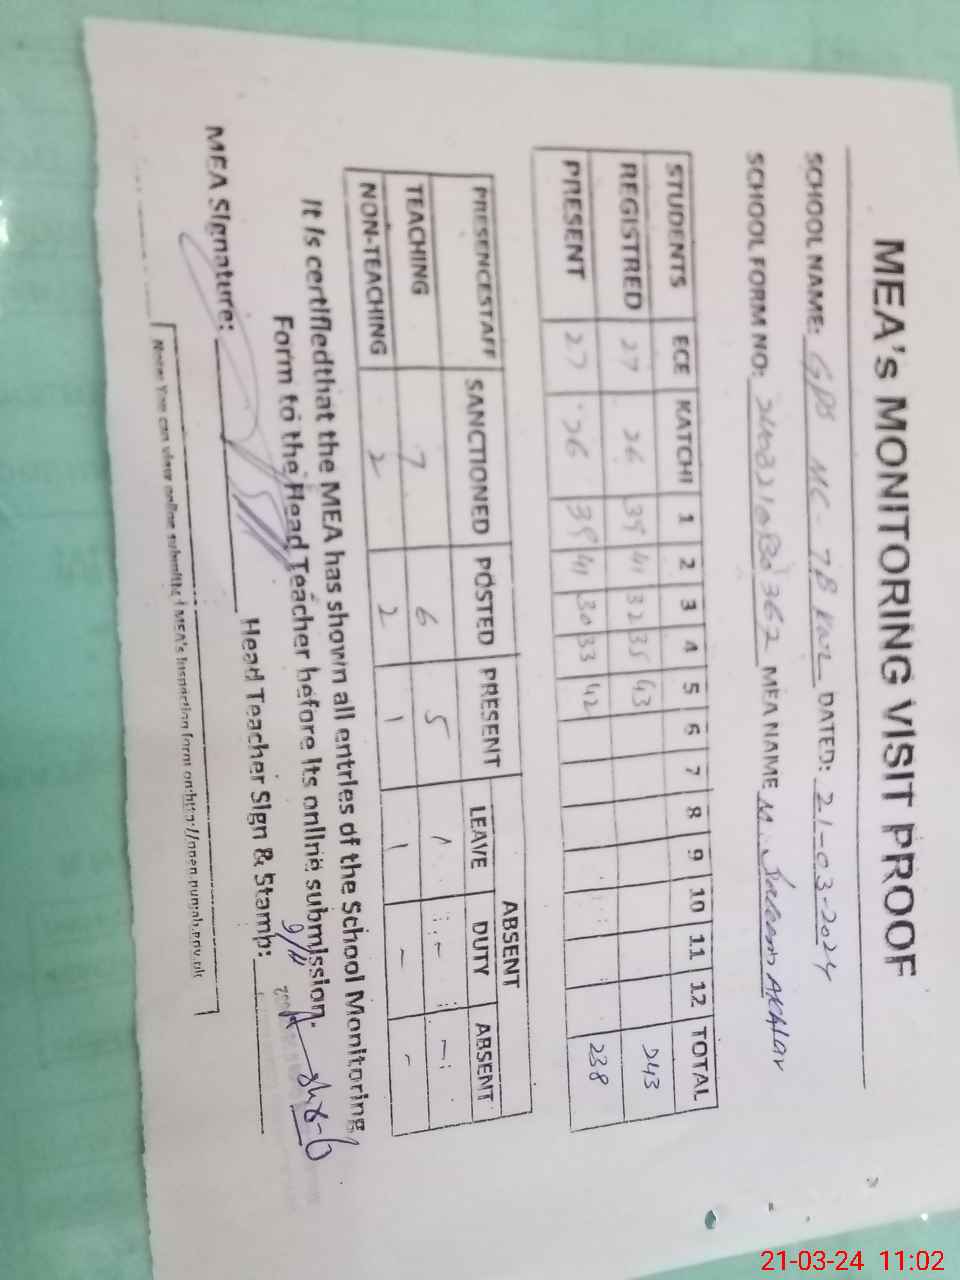 MEA's MONITORING VISIT PROOF
SCHOOL NAME: GPS MC-7B DATED: 21-03-2024
SCHOOL FORM NO: MEA NAME M.
STUDENTS ECE KATCHI 1 2 3 4 5 6 7 8 9 10 11 12 TOTAL
REGISTRED 27 26 39 41 32 35 43 243
PRESENT 27 26 39 41 30 33 42 238
ABSENT
PRESENCESTAFF SANCTIONED POSTED PRESENT LEAVE DUTY ABSENT
TEACHING 7 6 5 1 - -
NON-TEACHING 2 2 1 1 - -
It is certifiedthat the MEA has shown all entries of the School Monitoring
Form to the Head Teacher before its online submission.
MEA Signature: Head Teacher Sign & Stamp:
Note: You can view online submitted MEA's inspection form on:http://open.punjab.gov.pk
21-03-24 11:02